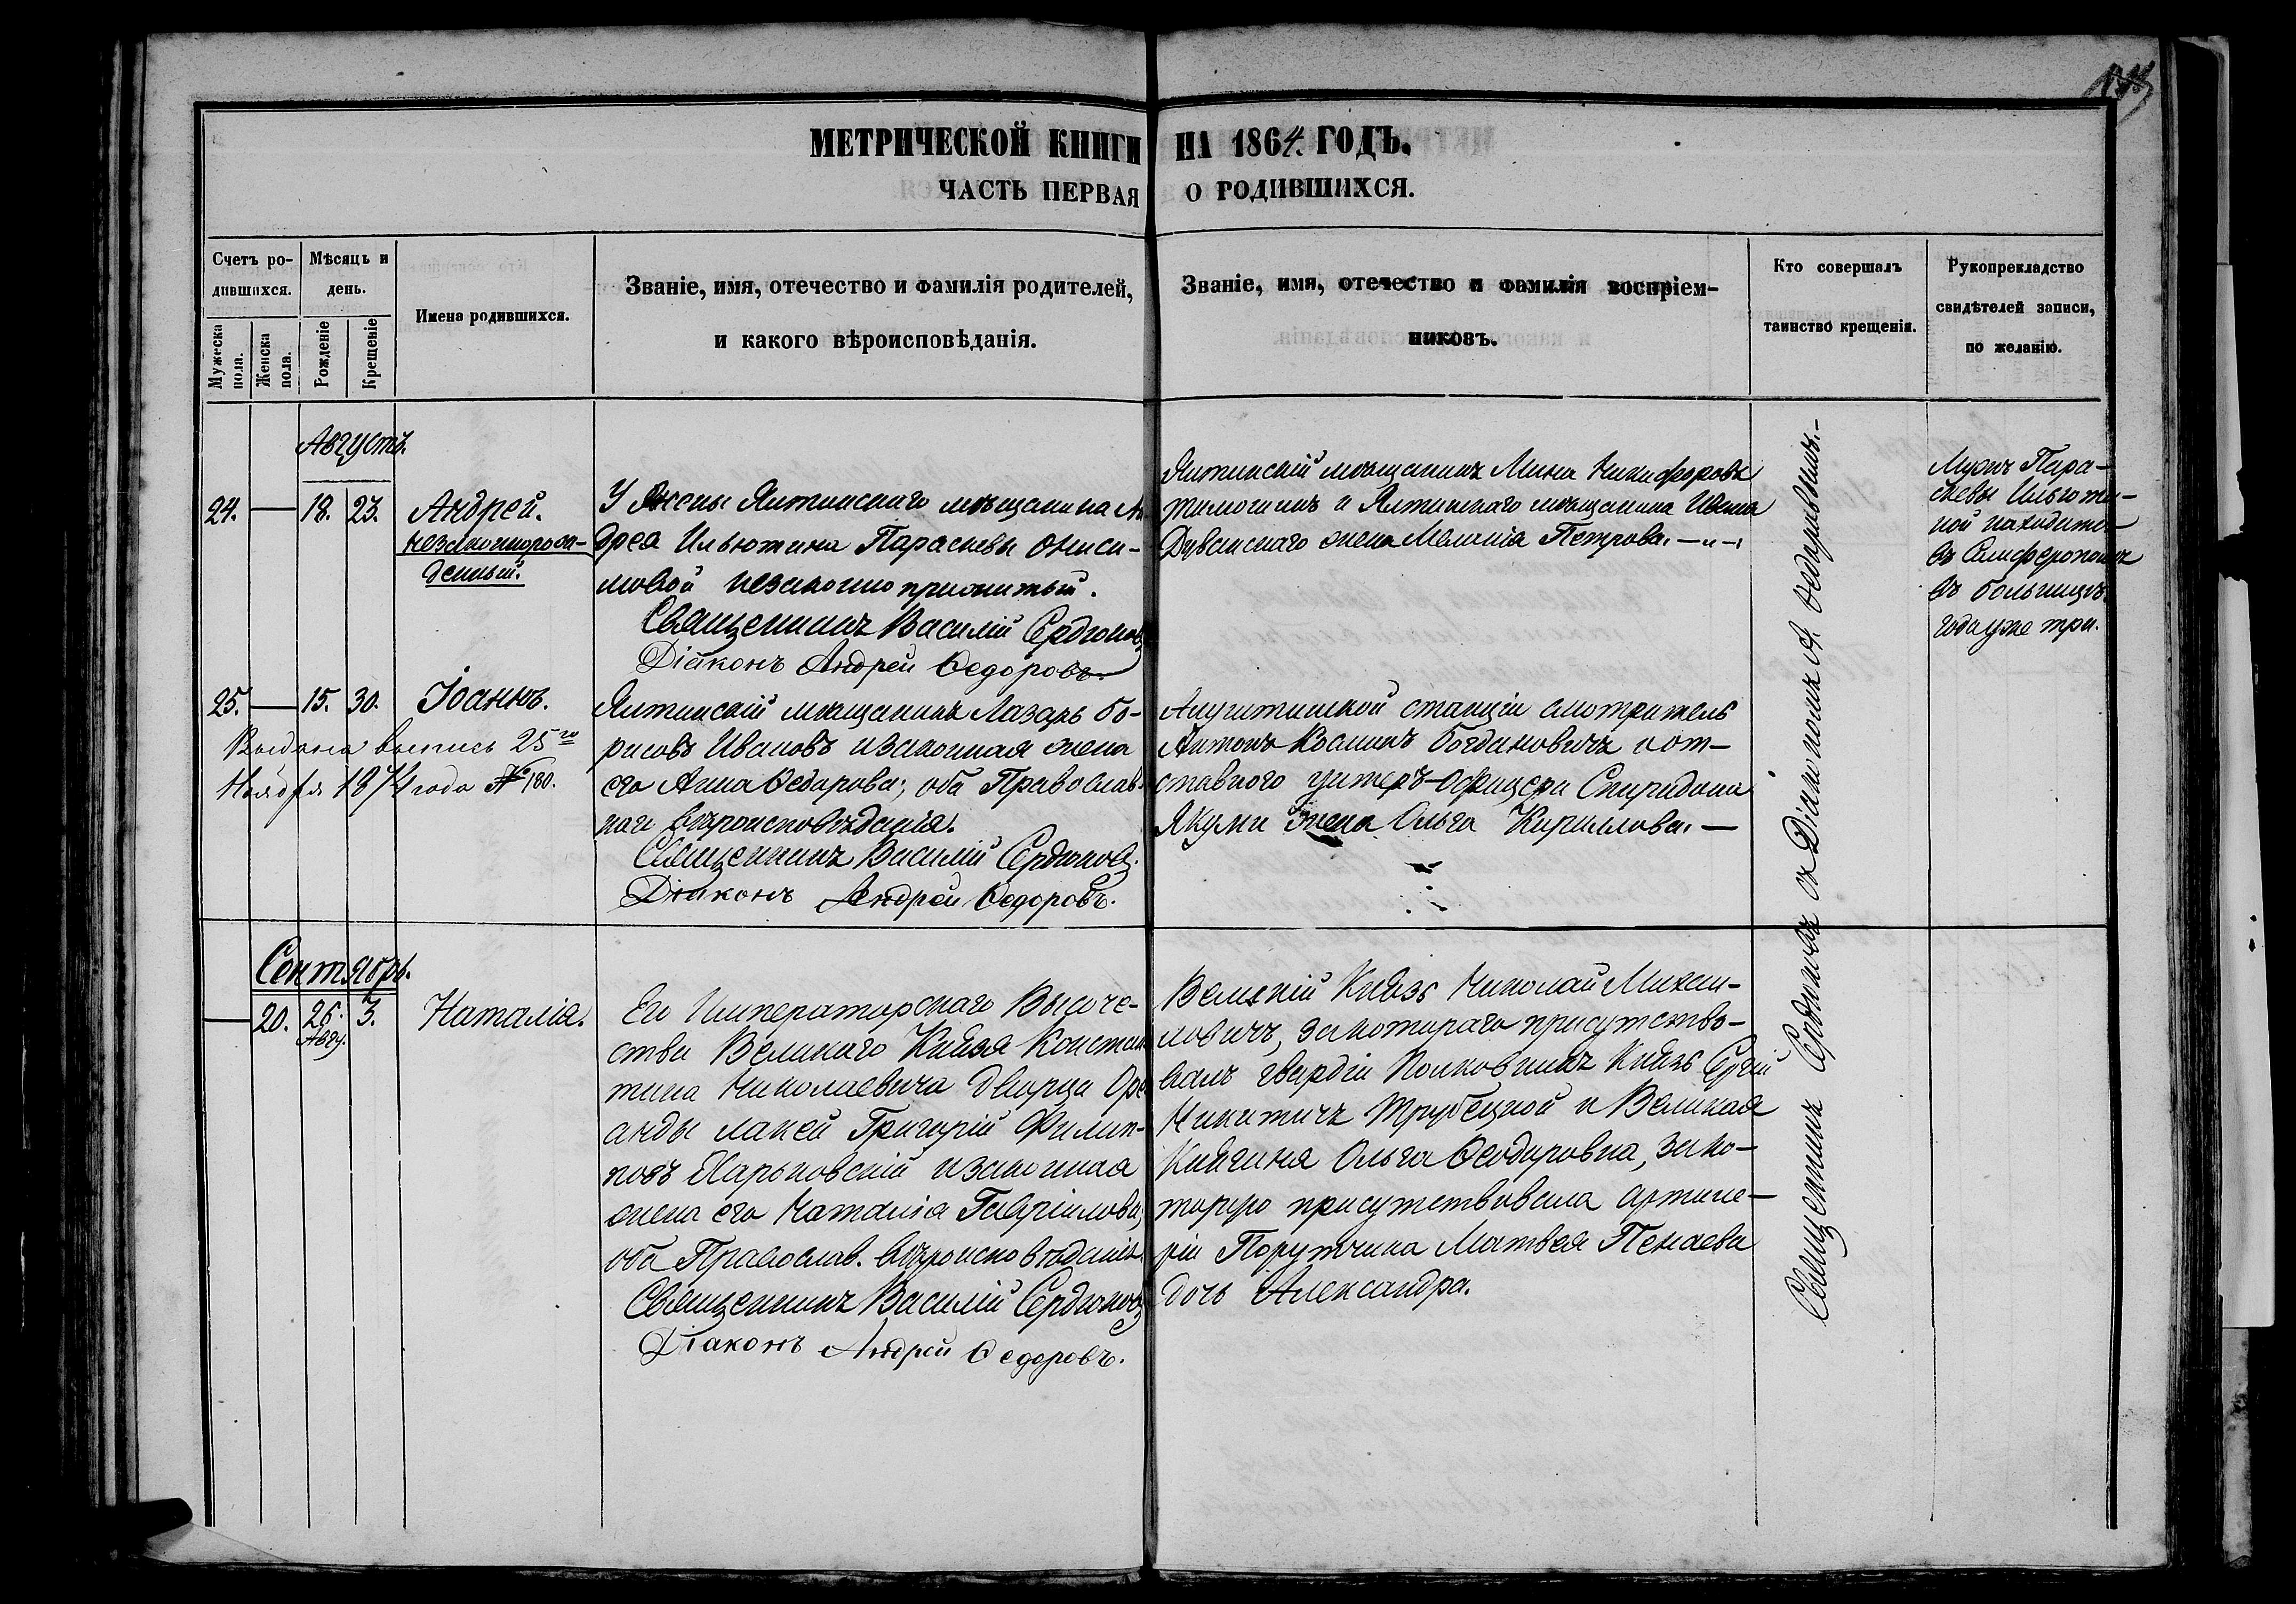 МЕТРИЧЕСКОЙ КНИГИ НА 1864. ГОДЪ.
ЧАСТЬ ПЕРВАЯ О РОДИВШИХСЯ.
Счетъ ро-
дившихся.
Мужеска
пола.
Женска
пола.
Мѣсяць и
день.
Рожденіе
Крещеніе
Имена родившихся.
Званіе, имя, отечество и фамилія родителей,
и какого вѣроисповѣданія.
Званіе, имя, отечество и фамилія воспріем-
никовъ.
Кто совершалъ
таинство крещенія.
Рукоприкладство
свидѣтелей записи,
по желанію.
Августъ.
24. — 18. 23. Андрей.
незаконнорож-
денный.
У жены Ялтинскаго мѣщанина Ан
дрея Ильютина Параскевы Ониси-
мовой незаконно прижитый.
Священникъ Василій Сердюковъ
Діаконъ Андрей Ѳедоровъ.
Ялтинскій мѣщанинъ Мина Никифоровъ
и Ялтинскаго мѣщанина Ивана
Дуванскаго жена Меланія Петрова. — „ —
Мужъ Пара-
скевы Ильюти-
ной находится
въ Симферополѣ
въ больницѣ
года уже три.
25. — 15. 30. Іоаннъ.
Выдана выпись 25го
Ноября 1874 года № 180.
Ялтинскій мѣщанинъ Лазарь Бо-
рисовъ Ивановъ и законная жена
его Анна Ѳедорова; оба Православ-
наго вѣроисповѣданія.
Священникъ Василій Сердюковъ.
Діаконъ Андрей Ѳедоровъ.
Алуштинской станціи смотритель
Антонъ Косминъ Богдановичъ и от-
ставного унтеръ-офицера Спиридона
Якуми жена Ольга Кириллова. —
Сентябрь.
— 20. 26. Авгу. 3. Наталія.
Его Императорскаго Высоче-
ства Великаго Князя Констан
тина Николаевича дворца Оре
анды лакей Григорій Филип-
повъ Харьковскій и законная
жена его Наталія Гавріилова,
оба Православ. вѣроисповѣданія.
Священникъ Василій Сердюковъ
Діаконъ Андрей Ѳедоровъ.
Великій Князь Николай Михаи-
ловичъ, за котораго присутство-
валъ гвардіи Полковникъ Князь Сергій
Никитичъ Трубецкой и Великая
Княгиня Ольга Ѳеодоровна, за ко-
торую присутствовала артиле-
ріи Поручика Матвея Пенаева
дочь Александра.
Священникъ Сердюковъ съ Діакономъ А. Ѳедоровымъ. —